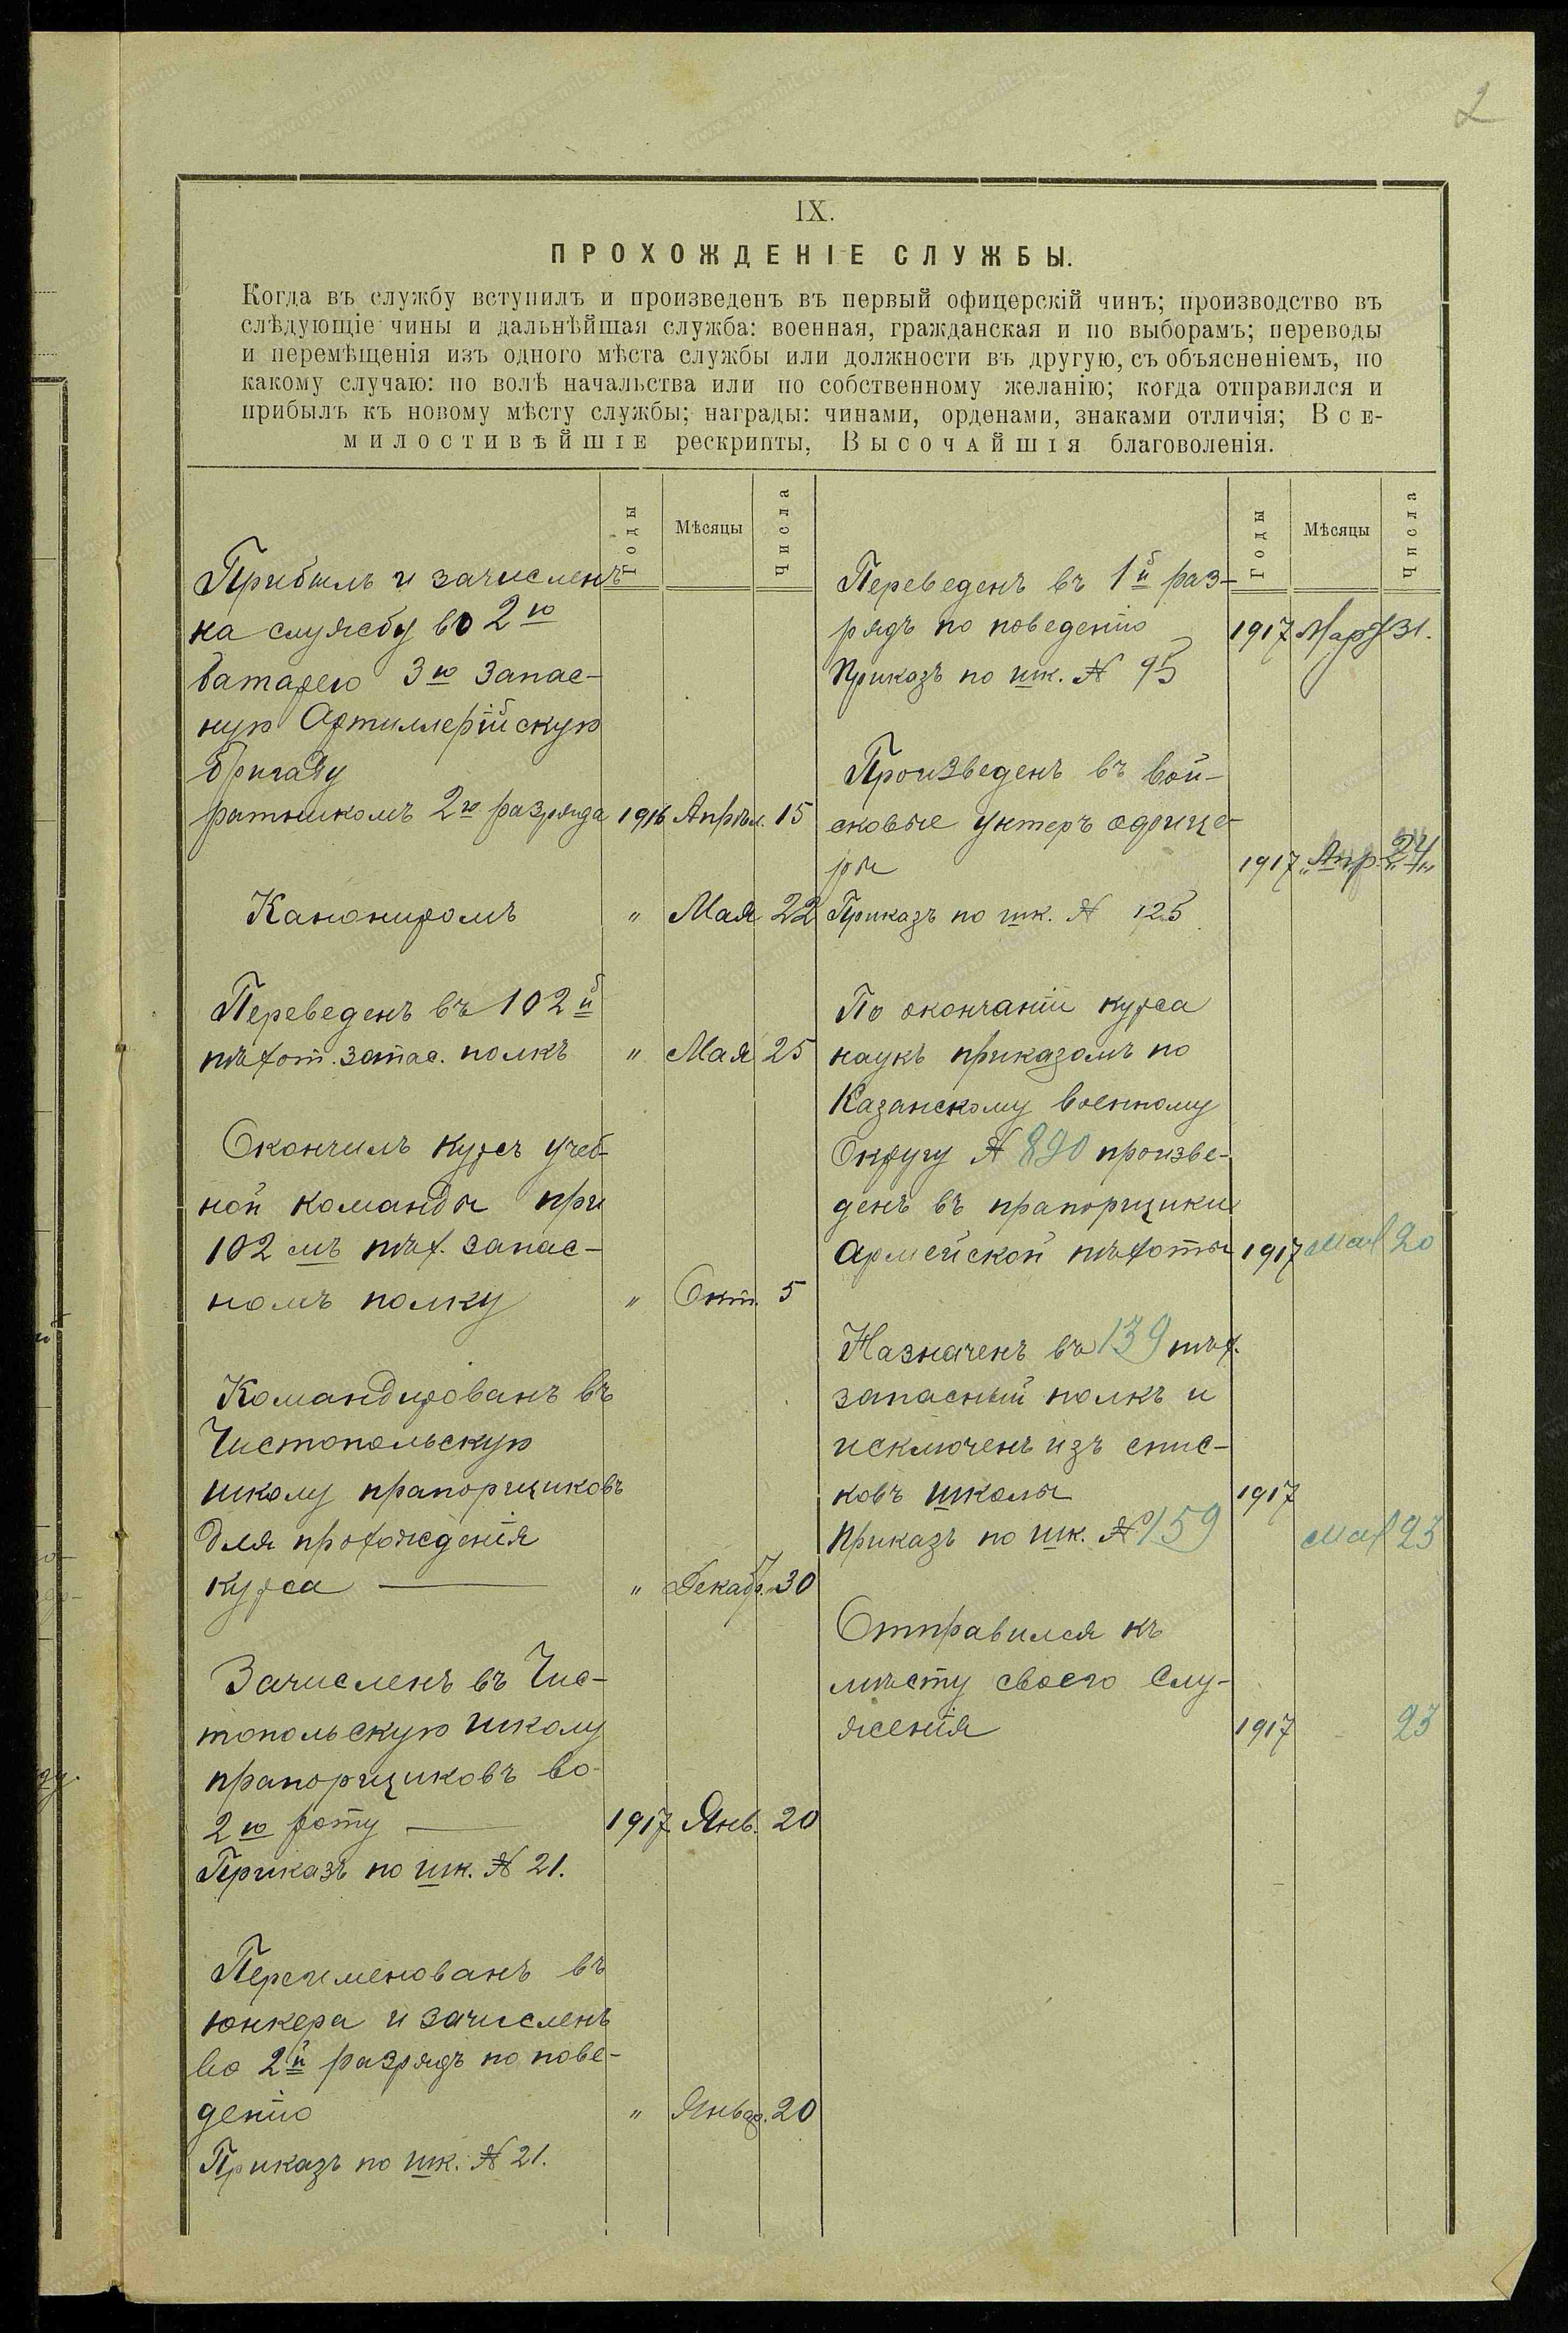 2
IX.
ПРОХОЖДЕНІЕ СЛУЖБЫ.
Когда въ службу вступилъ и произведенъ въ первый офицерскій чинъ; производство въ
слѣдующіе чины и дальнѣйшая служба: военная, гражданская и по выборамъ; переводы
и перемѣщенія изъ одного мѣста службы или должности въ другую, съ объясненіемъ, по
какому случаю: по волѣ начальства или по собственному желанію; когда отправился и
прибылъ къ новому мѣсту службы; награды: чинами, орденами, знаками отличія; Все-
милостивѣйшіе рескрипты, Высочайшія благоволенія.
Годы Мѣсяцы Числа
Прибылъ и зачисленъ
на службу во 2ю
батарею 3ю Запас-
ную Артиллерійскую
бригаду
ратникомъ 2го разряда 1916 Апрѣл. 15
Канониромъ " Мая 22
Переведенъ въ 102й
пѣхот. запас. полкъ " Мая 25
Окончилъ курсъ учеб-
ной команды при
102мъ пѣх. запас-
номъ полку " Окт. 5
Командированъ въ
Чистопольскую
школу прапорщиковъ
для прохожденія
курса — " Декабр. 30
Зачисленъ въ Чис-
топольскую школу
прапорщиковъ во
2ю роту — 1917 Янв. 20
Приказъ по шк. № 21.
Переименованъ въ
юнкера и зачисленъ
во 2й разрядъ по пове-
денію " Январ. 20
Приказъ по шк. № 21.
Годы Мѣсяцы Числа
Переведенъ въ 1й раз-
рядъ по поведенію 1917 Март 31.
Приказъ по шк. № 95
Произведенъ въ вой-
сковые унтеръ офице-
ры 1917 Апр. 24
Приказъ по шк. № 125
По окончаніи курса
наукъ приказомъ по
Казанскому военному
Округу № 890 произве-
денъ въ прапорщики
Армейской пѣхоты 1917 Мая 20
Назначенъ въ 139 пѣх.
запасный полкъ и
исключенъ изъ спис-
ковъ школы 1917
Приказъ по шк. № 159 Мая 23
Отправился къ
мѣсту своего слу-
женія 1917 23